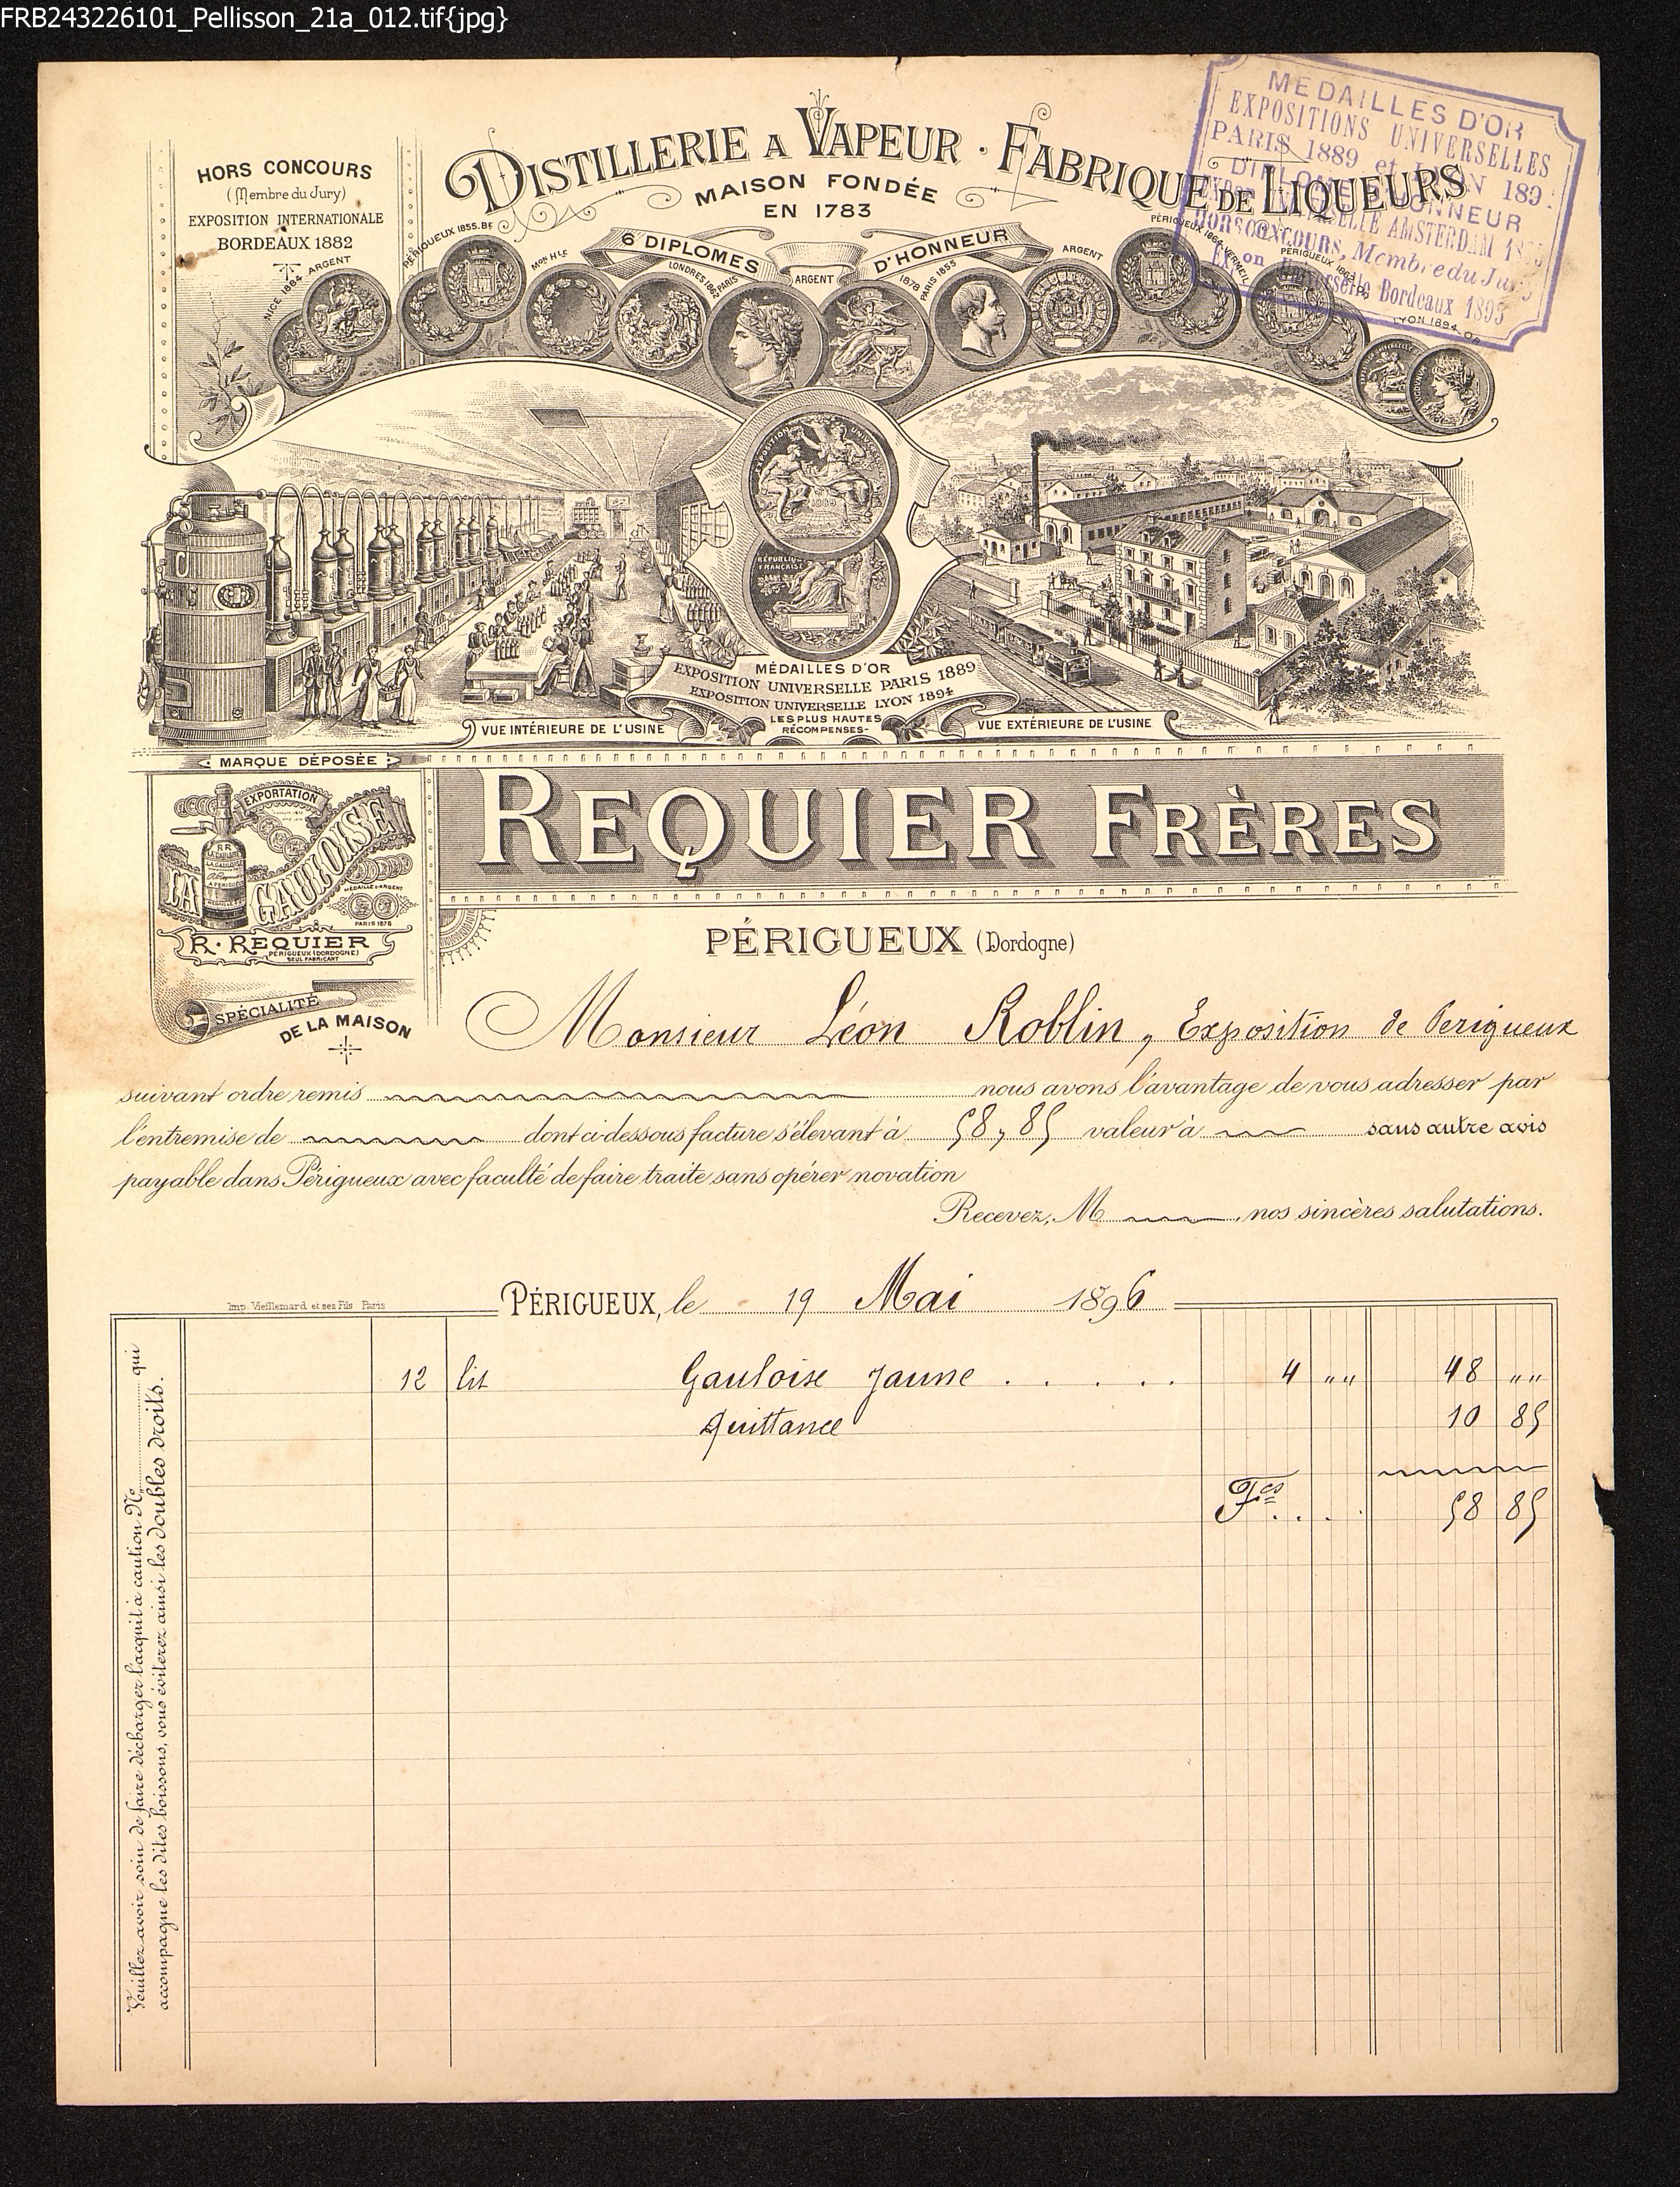 FRB243226101_Pellisson_21a_012.tif{jpg}
MEDAILLES D'OR
EXPOSITIONS UNIVERSELLES
PARIS 1889 et LYON 189
DIPLOME D'HONNEUR
AMSTERDAM
HORS CONCOURS, Membre du Jury
Bordeaux 1895
HORS CONCOURS
(Membre du Jury)
EXPOSITION INTERNATIONALE
BORDEAUX 1882
DISTILLERIE A VAPEUR · FABRIQUE DE LIQUEURS
MAISON FONDÉE
EN 1783
6 DIPLOMES D'HONNEUR
NICE 1884 ARGENT
PÉRIGUEUX 1855. Bf
Mon Hle
LONDRES 1862 PARIS
ARGENT
1878 PARIS 1855
ARGENT
PÉRIGUEUX 1864 VERMEIL
PÉRIGUEUX
LYON 1894 OR
EXPOSITION UNIVERSELLE
1889
RÉPUBLIQUE
FRANÇAISE
MÉDAILLES D'OR
EXPOSITION UNIVERSELLE PARIS 1889
EXPOSITION UNIVERSELLE LYON 1894
LES PLUS HAUTES
RÉCOMPENSES-
VUE INTÉRIEURE DE L'USINE
VUE EXTÉRIEURE DE L'USINE
MARQUE DÉPOSÉE
EXPORTATION
LA GAULOISE
RR
MÉDAILLE D'ARGENT
PARIS 1878
R. REQUIER
PÉRIGUEUX (DORDOGNE)
SEUL FABRICANT
SPÉCIALITÉ
DE LA MAISON
REQUIER FRÈRES
PÉRIGUEUX (Dordogne)
Monsieur Léon Roblin, Exposition de Perigueux
suivant ordre remis nous avons l'avantage de vous adresser par
l'entremise de dont ci-dessous facture s'élevant à 58,85 valeur à sans autre avis
payable dans Périgueux avec faculté de faire traite sans opérer novation
Recevez, M , nos sincères salutations.
Imp. Vieillemard et ses Fils Paris
PÉRIGUEUX, le 19 Mai 1896
12 lit Gauloise Jaune . . . . . 4 "" 48 ""
Quittance 10 85
Fcs . . . 58 85
Veuillez avoir soin de faire décharger l'acquit à caution No qui
accompagne les dites boissons, vous éviterez ainsi les doubles droits.